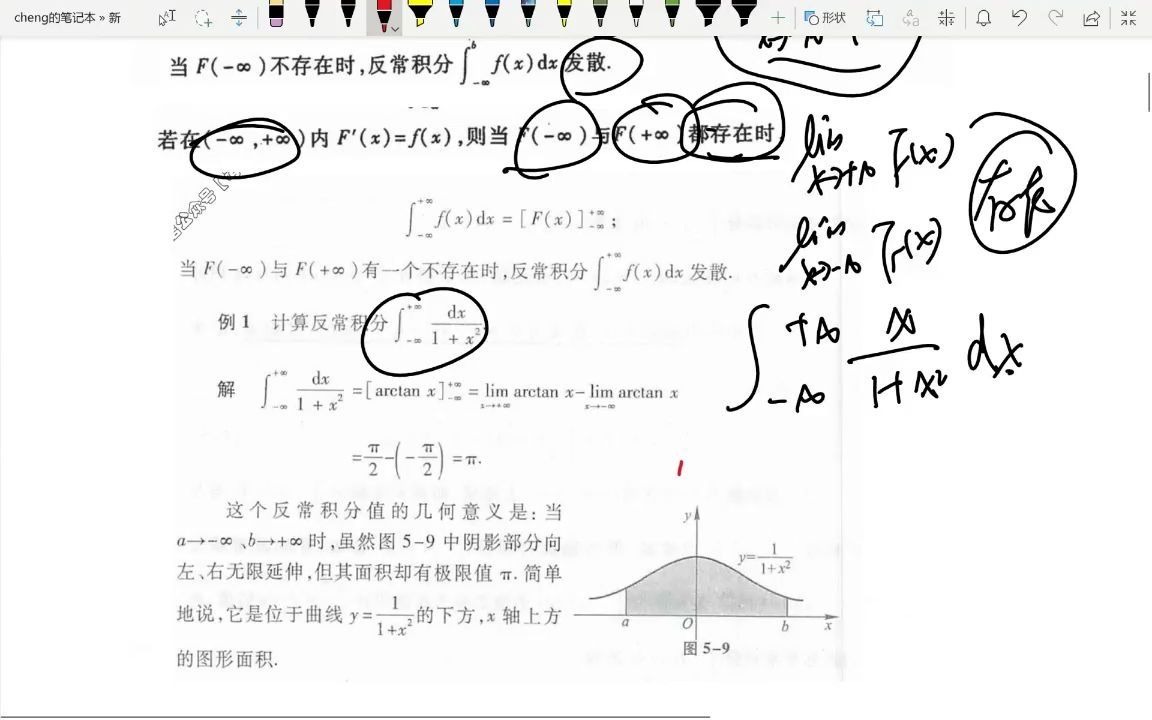 cheng的笔记本 » 新
形状
当 F(-∞)不存在时,反常积分∫_{-∞}^{b} f(x)dx 发散.
若在(-∞,+∞)内 F′(x)=f(x),则当 F(-∞)与F(+∞)都存在时,
lim x→+∞ F(x)
存在
∫_{-∞}^{+∞} f(x)dx=[F(x)]_{-∞}^{+∞};
lim x→-∞ F(x)
当 F(-∞)与 F(+∞)有一个不存在时,反常积分∫_{-∞}^{+∞} f(x)dx 发散.
例 1 计算反常积分∫_{-∞}^{+∞} dx/(1+x²)
∫_{-∞}^{+∞} x/(1+x²) dx
解 ∫_{-∞}^{+∞} dx/(1+x²) =[arctan x]_{-∞}^{+∞} = lim_{x→+∞} arctan x- lim_{x→-∞} arctan x
=π/2-(-π/2)=π.
这个反常积分值的几何意义是:当
a→-∞、b→+∞时,虽然图 5-9 中阴影部分向
左、右无限延伸,但其面积却有极限值 π.简单
地说,它是位于曲线 y=1/(1+x²)的下方,x 轴上方
的图形面积.
y
y=1/(1+x²)
a O b x
图 5-9